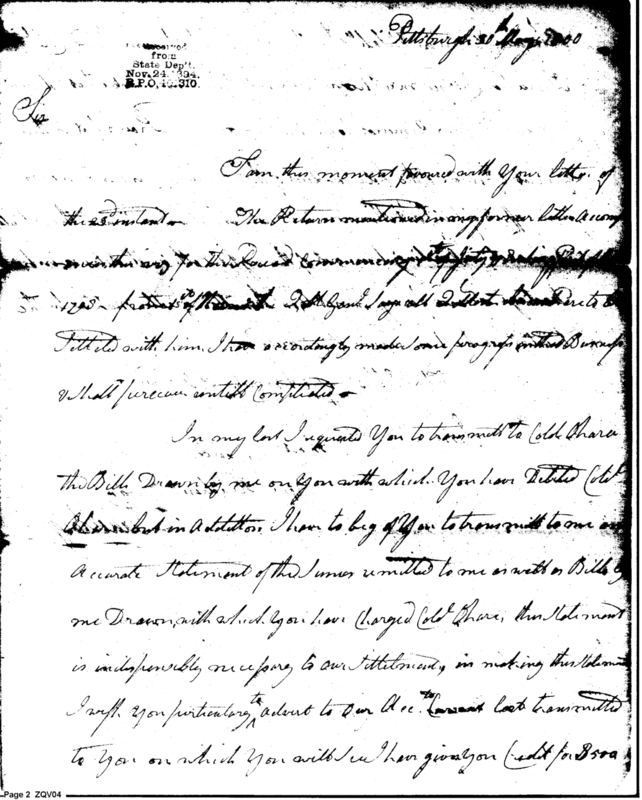 Pittsburgh 31th May 1800
received
from
State Dep't.
Nov. 24. 1894.
R.P.O. 310.
Sir
I am this moment favoured with Your letter of
the 23 instant The Return mentioned in my former letter
for the Period commencing
1798
Settled with him, I have accordingly made some progress in that Business
& shall persevere untill Compleated
In my last I requested You to transmitt to Colol. Ohara
the Bills Drawn by me on You with which You have Debited Colol.
Ohara but in addition I have to beg of You to transmitt to me an
Accurate Statement of the Sumes remitted to me as well as Bills by
me Drawn, with which You have Charged Colol. Ohara, this Statement
is indispensibly necessary to our Settelment, in making this Statement
I wish You particularly to advert to our Acct. Current last transmitted
to You on which You will see I have given You Credit for $500
Page 2 ZQV04